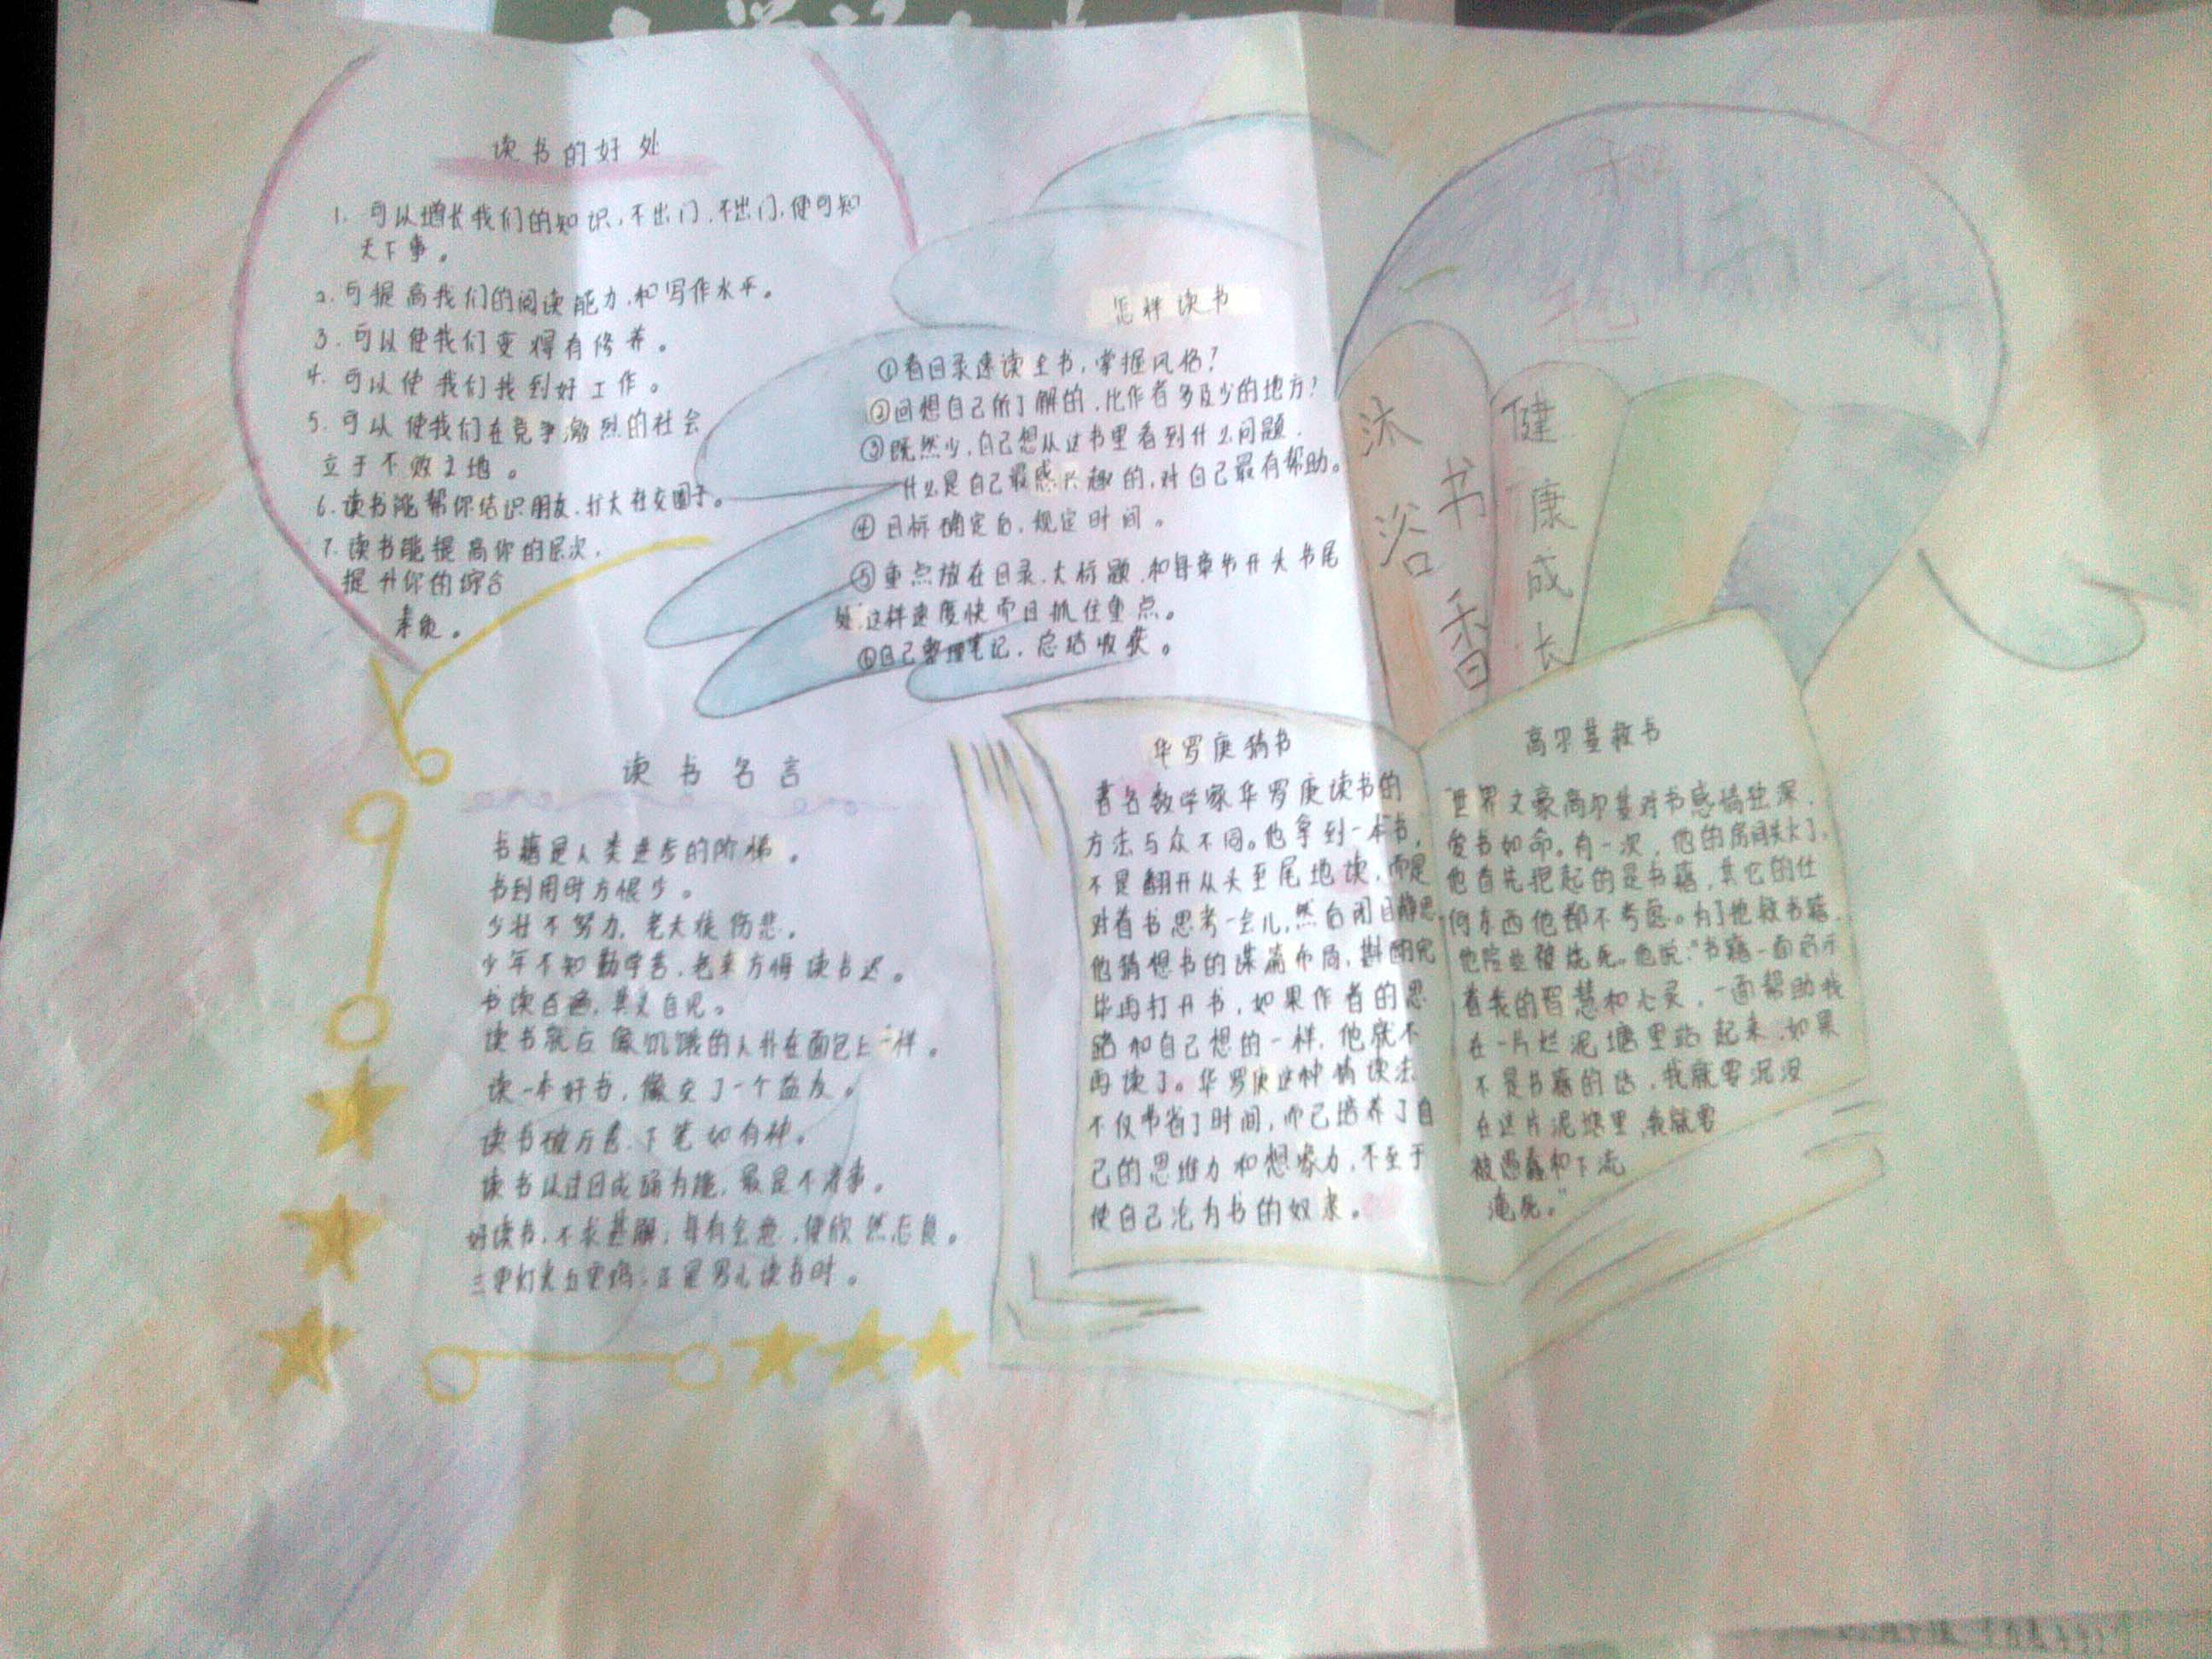 读书的好处
1. 可以增长我们的知识,不出门,不出门,便可知
天下事。
2. 可提高我们的阅读能力,和写作水平。
3. 可以使我们变得有修养。
4. 可以使我们找到好工作。
5. 可以使我们在竞争激烈的社会
立于不败之地。
6. 读书能帮你结识朋友,扩大社交圈子。
7. 读书能提高你的层次,
提升你的综合
素能。
怎样读书
①看目录速读全书,掌握风格?
②回想自己所了解的,比作者多及少的地方?
③既然少,自己想从这书里看到什么问题.
什么是自己最感兴趣的,对自己最有帮助。
④目标确定后,规定时间。
⑤重点放在目录、大标题,和每章节开头书尾
处,这样速度快而且抓住重点。
⑥自己整理笔记,总结收获。
沐浴书香
健康成长
读书名言
书籍是人类进步的阶梯。
书到用时方恨少。
少壮不努力,老大徒伤悲。
少年不知勤学苦,老来方悔读书迟。
书读百遍,其义自见。
读书就应像饥饿的人扑在面包上一样。
读一本好书,像交了一个益友。
读书破万卷,下笔如有神。
读书以过目成诵为能,最是不济事。
好读书,不求甚解;每有会意,便欣然忘食。
三更灯火五更鸡,正是男儿读书时。
华罗庚猜书
著名数学家华罗庚读书的
方法与众不同。他拿到一本书,
不是翻开从头至尾地读,而是
对着书思考一会儿,然后闭目静思.
他猜想书的谋篇布局,斟酌完
毕再打开书,如果作者的思
路和自己想的一样,他就不
再读了。华罗庚这种猜读法
不仅节省了时间,而己培养了自
己的思维力和想象力,不至于
使自己沦为书的奴隶。
高尔基救书
世界文豪高尔基对书感情独深,
爱书如命。有一次,他的房间失火了,
他首先抱起的是书籍,其它的任
何东西他都不考虑。为了抢救书籍,
他险些被烧死。他说:"书籍一面启示
着我的智慧和心灵,一面帮助我
在一片烂泥塘里站起来,如果
不是书籍的话,我就要沉没
在这片泥塘里,我就要
被愚蠢和下流
淹死。"